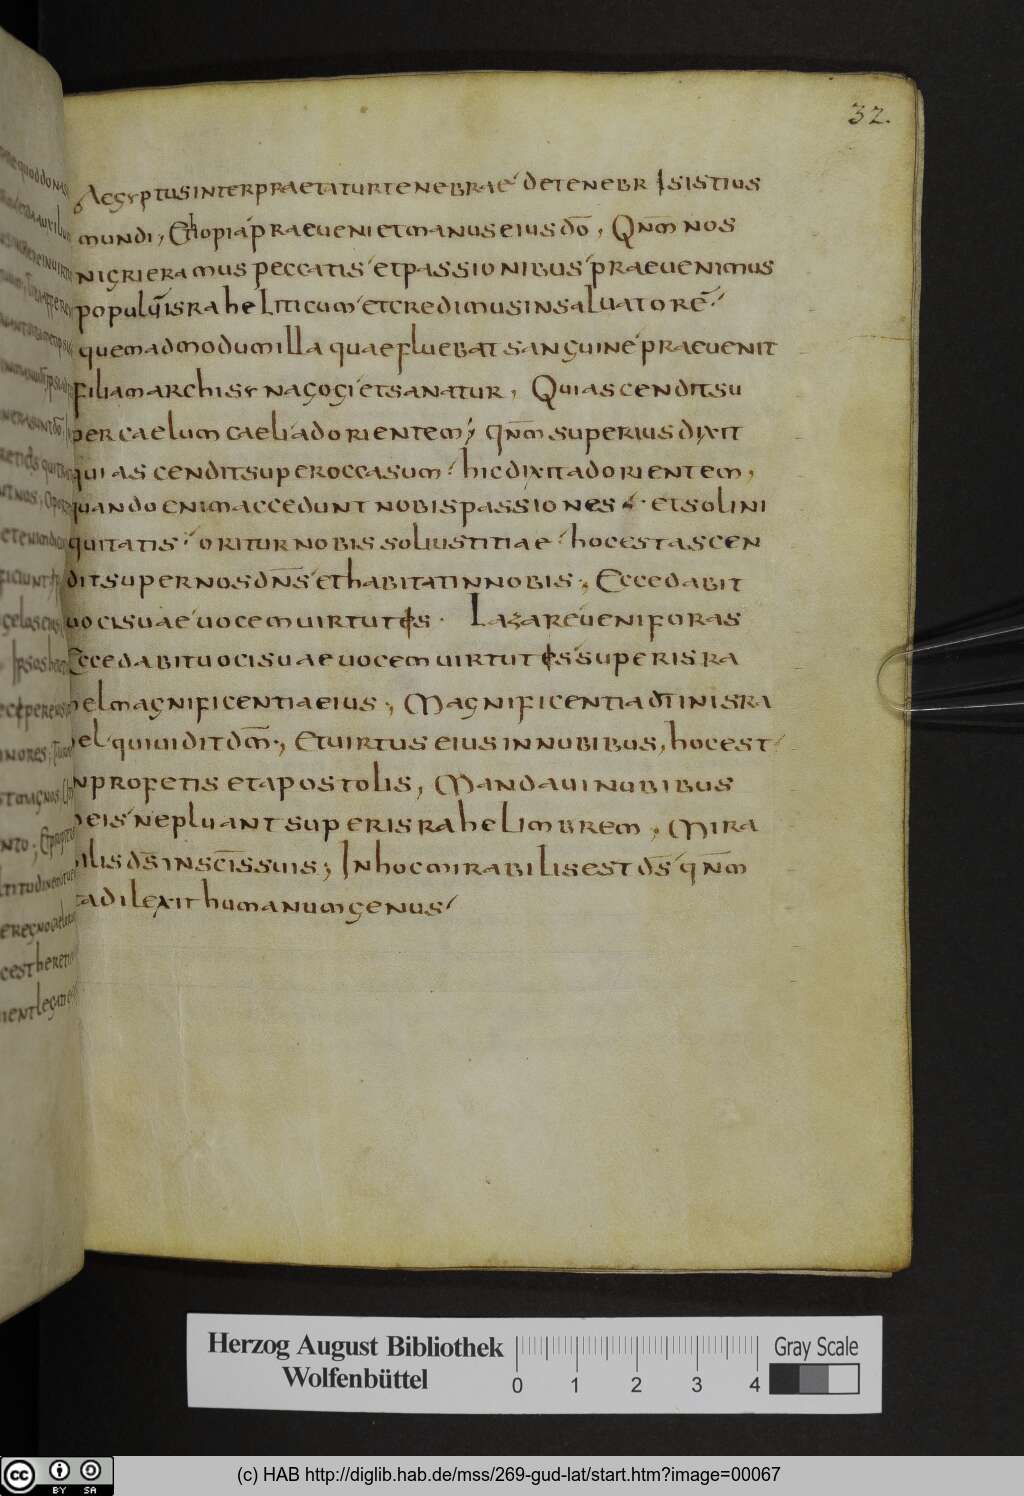 32.
Aegyptus interpraetatur tenebrae de tenebr Isistius
mundi, Ethiopia praeueni et manus eius do̅, Qnm̅ nos
nigri eramus peccatis et passionibus praeuenimus
populu̅ israheliticum et credimus in saluatore̅
quemadmodum illa quae fluebat sanguine praeuenit
filiam archisynagogi et sanatur, Qui ascendit su
per caelum caeli ad orientem; qnm̅ superius dixit
qui ascendit super occasum hic dixit ad orientem,
quando enim accedunt nobis passiones et sol ini
quitatis oritur nobis sol iustitiae hoc est ascen
dit super nos dn̅s et habitat in nobis; Ecce dabit
uoci suae uocem uirtutis. Lazare ueni foras
Ecce dabit uoci suae uocem uirtutis superisra
hel magnificentia eius; Magnificentia di̅ in isra
hel qui uidit dm̅; Et uirtus eius in nubibus, hoc est
in profetis et apostolis, Mandaui nubibus
meis ne pluant super israhel imbrem, Mira
bilis ds̅ in sci̅s suis; In hoc mirabilis est ds̅ qnm̅
ta dilexit humanum genus
Herzog August Bibliothek
Wolfenbüttel
0 1 2 3 4
Gray Scale
cc BY SA
(c) HAB http://diglib.hab.de/mss/269-gud-lat/start.htm?image=00067